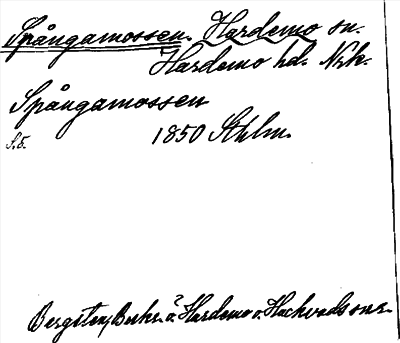 Spångamossen. Hardemo sn.
Hardemo hd. Nrk.
Spångamossen
1850 Sthlm.
S. 5.
Bergsten, Beskr. ö. Hardemo o. Hackvads snr.